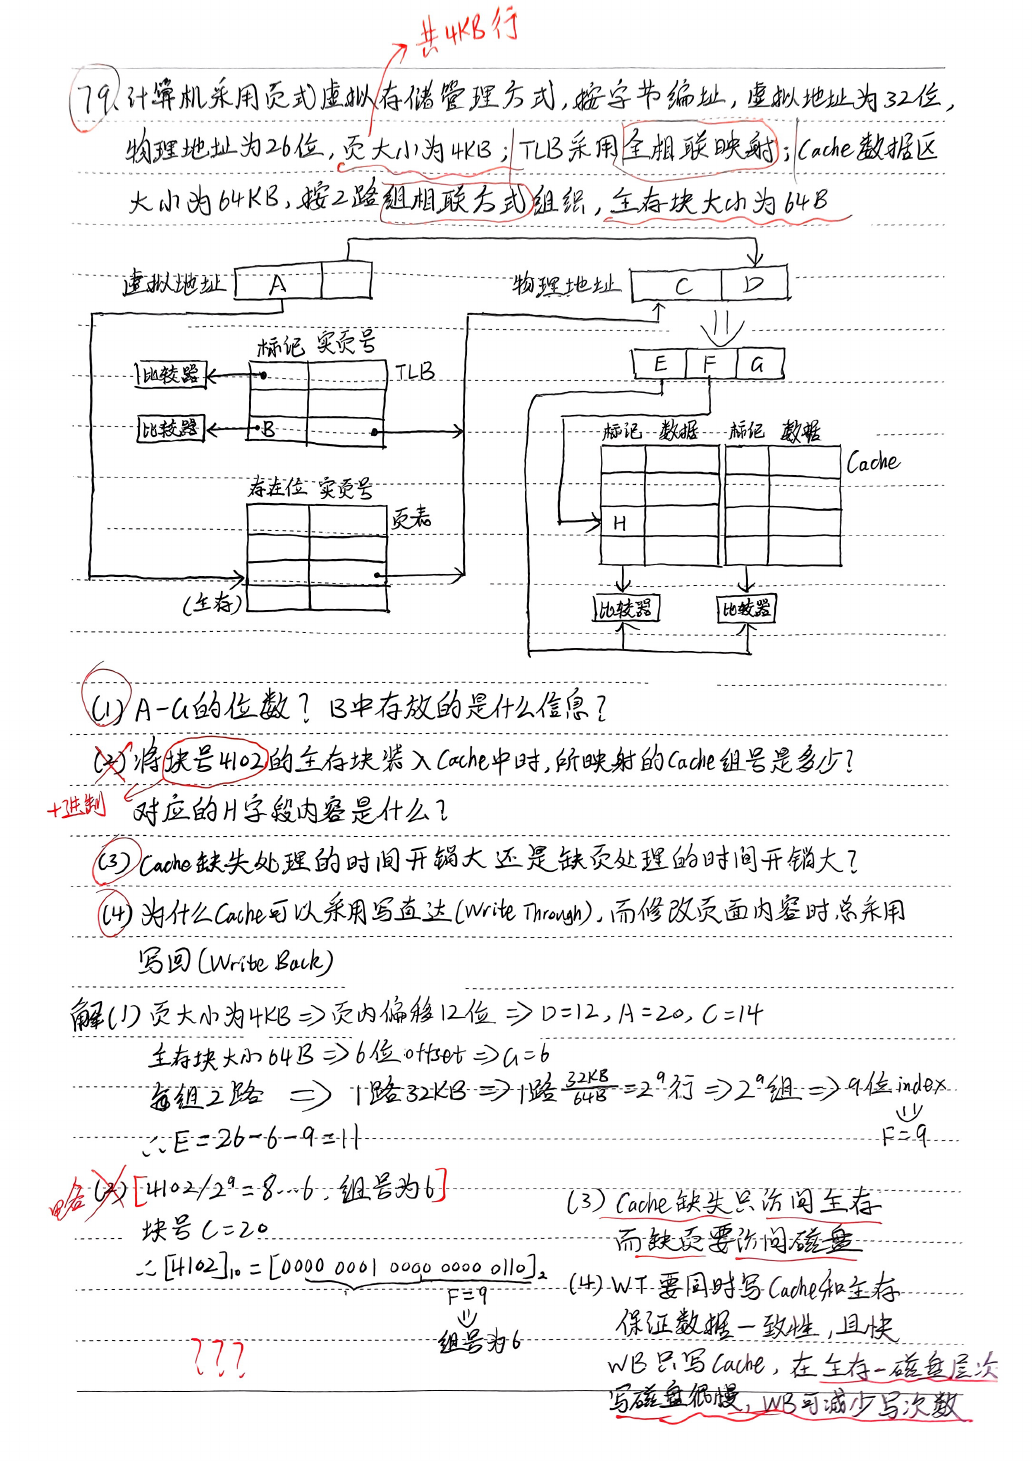 共4KB行
79.计算机采用页式虚拟存储管理方式,按字节编址,虚拟地址为32位,
物理地址为26位,页大小为4KB;TLB采用全相联映射;Cache数据区
大小为64KB,按2路组相联方式组织,主存块大小为64B
虚拟地址 A 物理地址 C D
标记 实页号 E F G
比较器 TLB
比较器 B 标记 数据 标记 数据
Cache
存在位 实页号
页表 H
(主存) 比较器 比较器
(1) A-G的位数?B中存放的是什么信息?
(2) 将块号4102的主存块装入Cache中时,所映射的Cache组号是多少?
十进制 对应的H字段内容是什么?
(3) Cache缺失处理的时间开销大还是缺页处理的时间开销大?
(4) 为什么Cache可以采用写直达(Write Through),而修改页面内容时总采用
写回(Write Back)
解(1) 页大小为4KB⇒页内偏移12位⇒D=12,A=20,C=14
主存块大小64B⇒6位offset⇒G=6
每组2路 ⇒ 1路32KB⇒1路32KB/64B=2⁹行⇒2⁹组⇒9位index
F=9
∴E=26-6-9=11
略 (2) [4102/2⁹=8…6,组号为6]
块号C=20
∴[4102]₁₀=[0000 0001 0000 0000 0110]₂
F=9
组号为6
???
(3) Cache缺失只访问主存
而缺页要访问磁盘
(4) WT要同时写Cache和主存
保证数据一致性,且快
WB只写Cache,在主存-磁盘层次
写磁盘很慢,WB可减少写次数